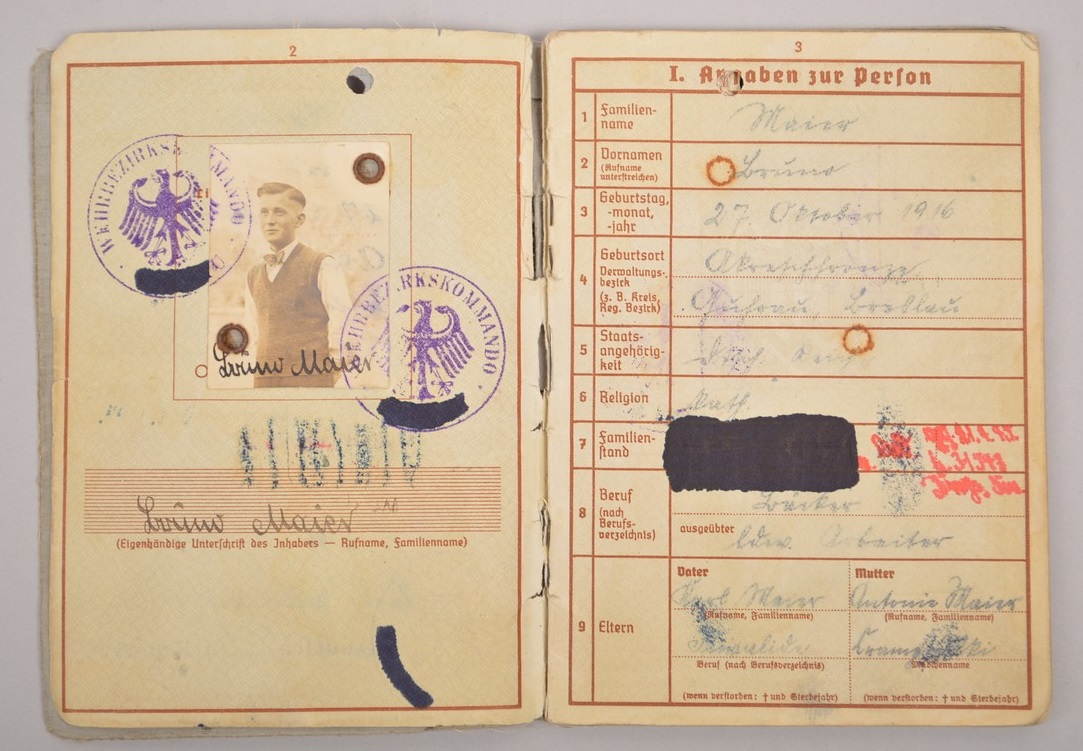 2
WEHRBEZIRKSKOMMANDO
WEHRBEZIRKSKOMMANDO
Bruno Maier
Bruno Maier
(Eigenhändige Unterschrift des Inhabers — Rufname, Familienname)
3
I. Angaben zur Person
1 Familien-
name
Maier
2 Vornamen
(Rufname
unterstreichen)
Bruno
3 Geburtstag,
-monat,
-jahr
27. Oktober 1916
4 Geburtsort
Verwaltungs-
bezirk
(z. B. Kreis,
Reg. Bezirk)
Guhrau Breslau
5 Staats-
angehörig-
keit
6 Religion
kath.
7 Familien-
stand
8 Beruf
(nach
Berufs-
verzeichnis)
Bäcker
ausgeübter
ldw. Arbeiter
9 Eltern
Vater
Karl Maier
(Rufname, Familienname)
Invalide
Beruf (nach Berufsverzeichnis)
(wenn verstorben: † und Sterbejahr)
Mutter
Antonie Maier
(Rufname, Familienname)
Mädchenname
(wenn verstorben: † und Sterbejahr)